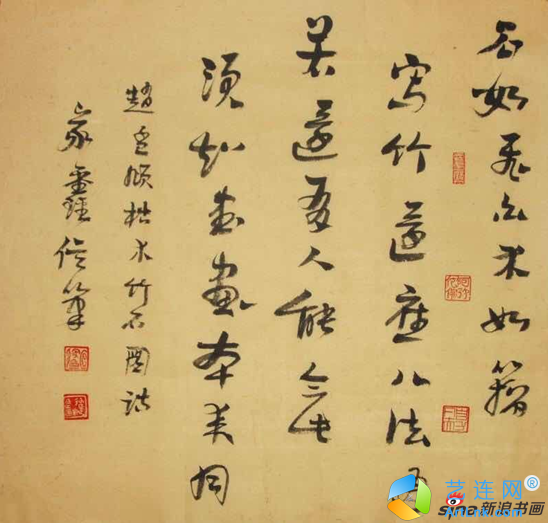 石如飛白木如籀
寫竹還應八法通
若還有人能會此
須知書畫本來同
趙孟頫枯木竹石圖詩
家鑫信筆
艺连网®
sina新浪书画